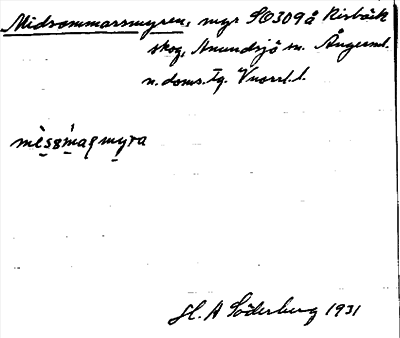 Midsommarsmyren, myr SO309 å Risbäck
skog, Anundsjö sn. Ångerml.
n. doms. tg. Vnorrl. l.
mèssmaɽmyra
H. A Söderberg 1931